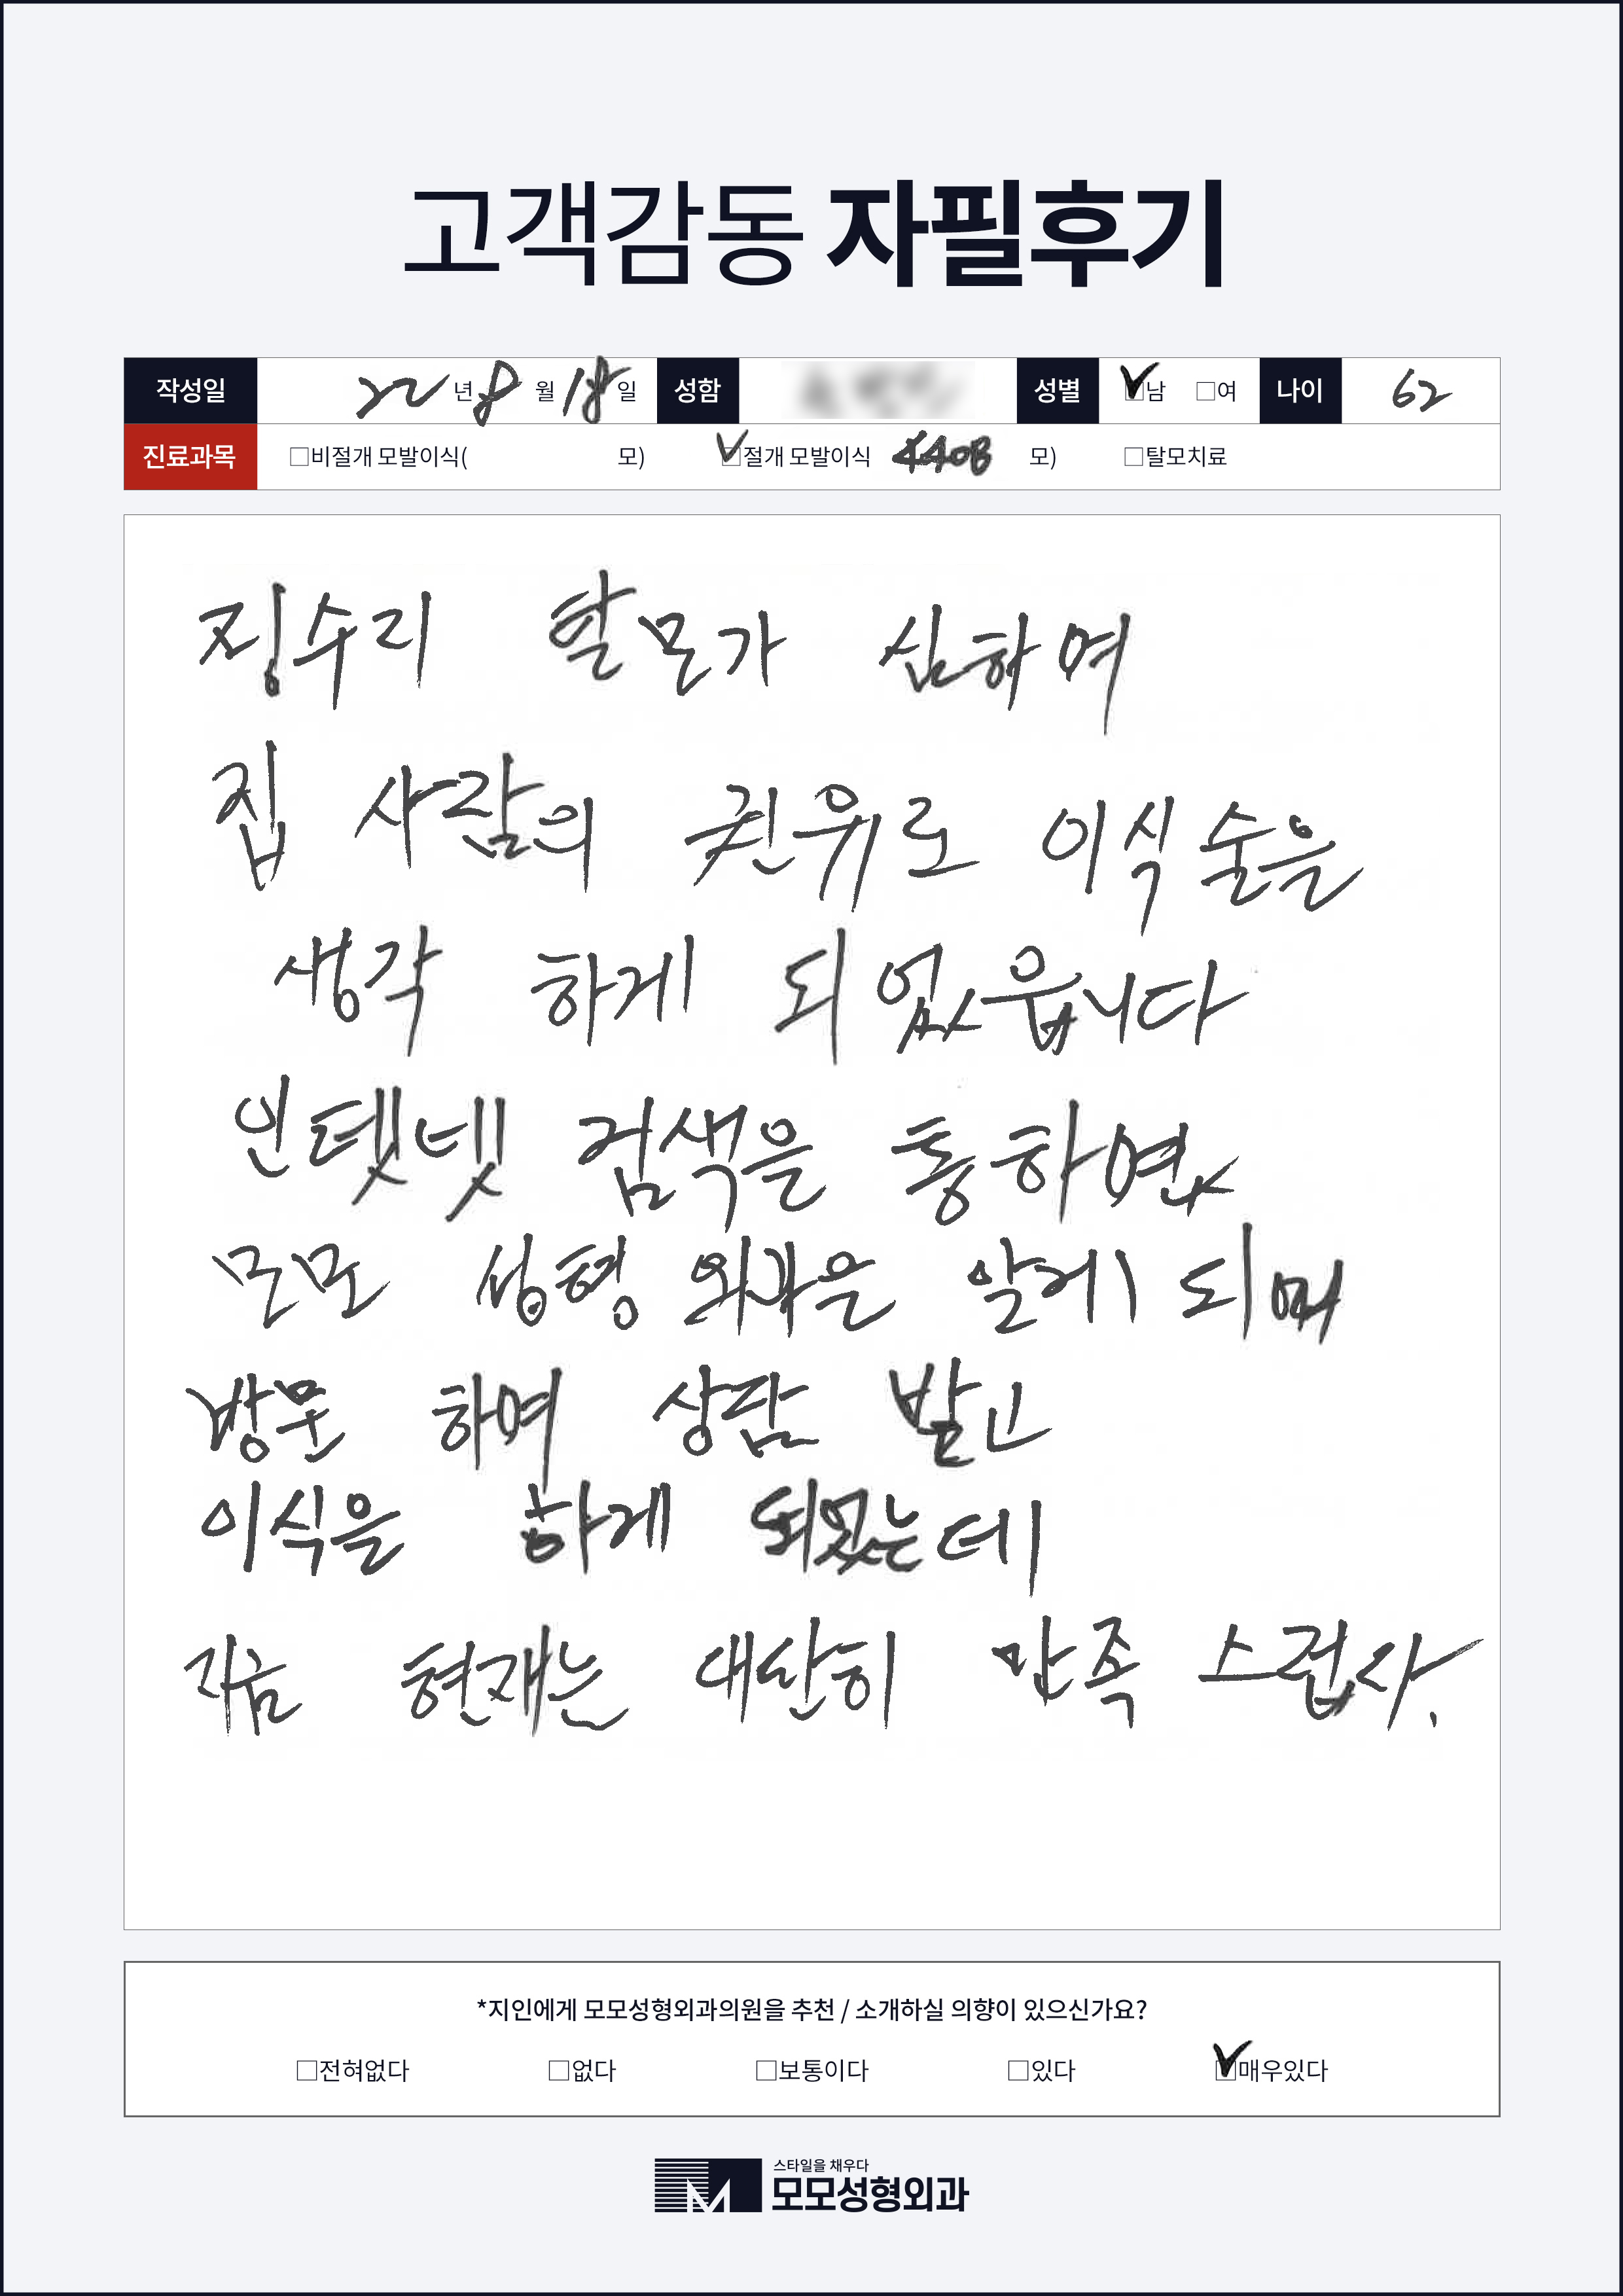 고객감동 자필후기
작성일 22년 8월 18일 성함 성별 ☑남 □여 나이 62
진료과목 □비절개 모발이식( 모) ☑절개 모발이식 4408 모) □탈모치료
징수리 탈모가 심하여
집 사람의 권유로 이식술을
생각 하게 되었읍니다
인텟넷 검색을 통하였
모모 성형외과을 알게 되며
방문 하여 상담 받고
이식을 하게 되었는데
지금 현재는 대단히 만족 스럽사.
*지인에게 모모성형외과의원을 추천 / 소개하실 의향이 있으신가요?
□전혀없다 □없다 □보통이다 □있다 ☑매우있다
스타일을 채우다
M 모모성형외과